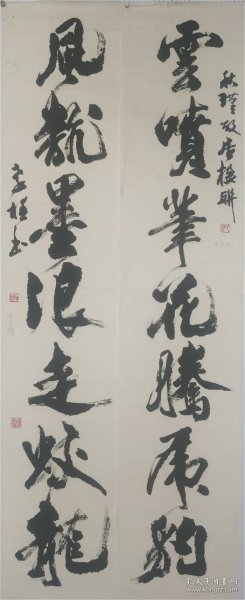 秋瑾故居楹联
雲噴筆花騰虎豹
風翻墨浪走蛟龍